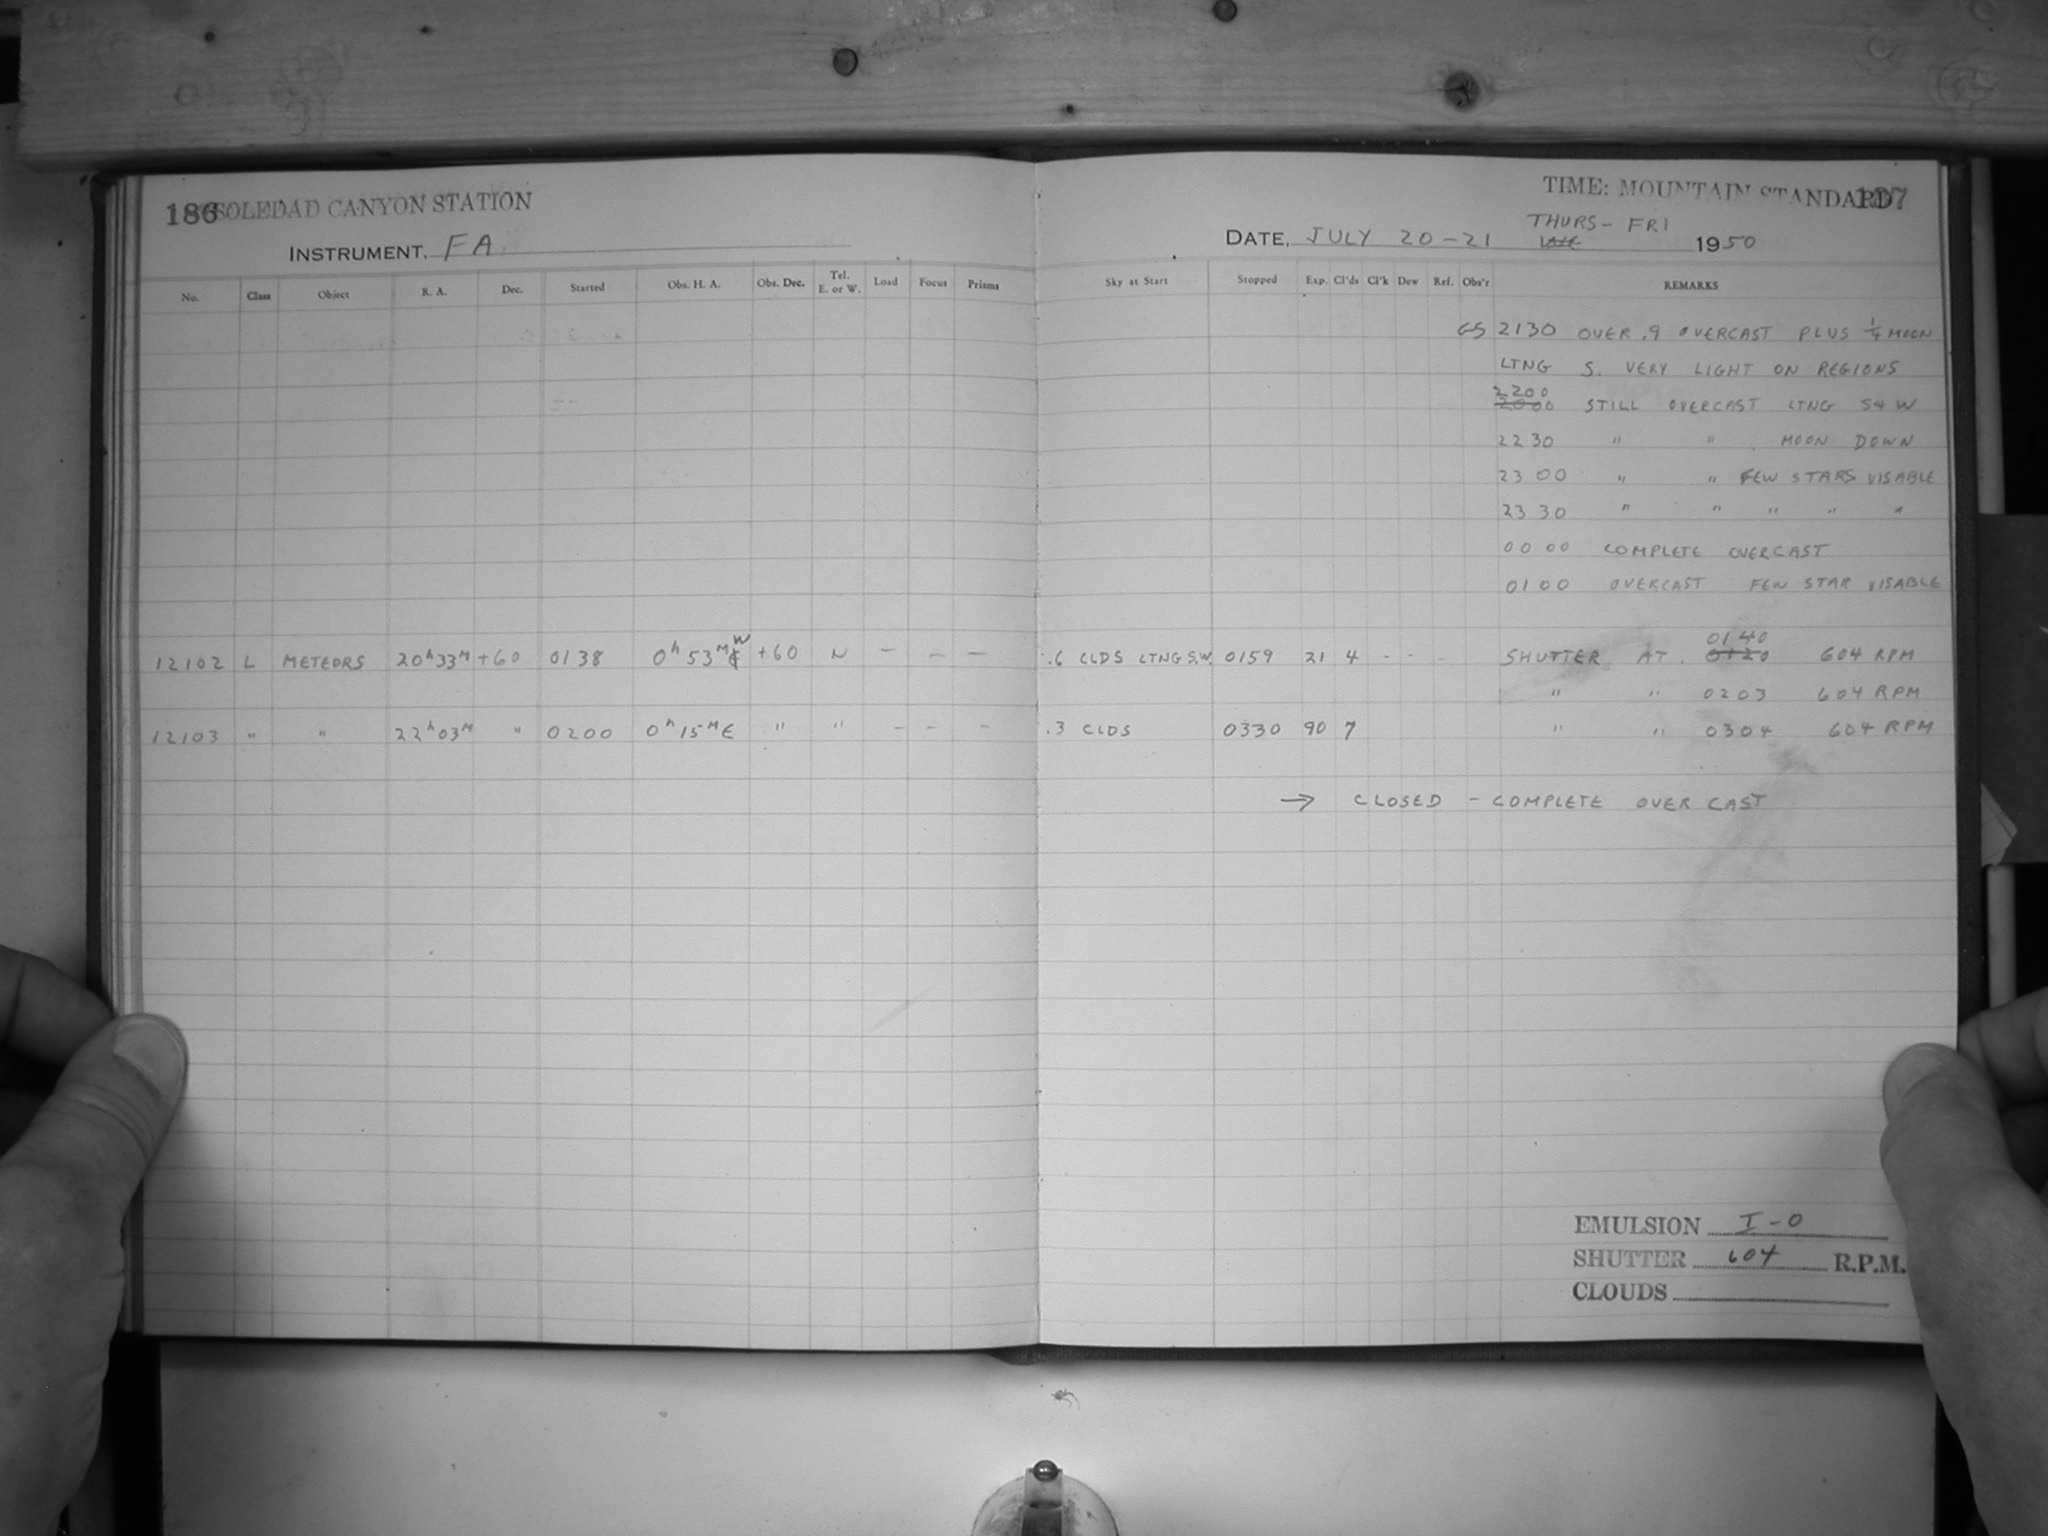 186 SOLEDAD CANYON STATION
INSTRUMENT, FA
No. Class Object R. A. Dec. Started Obs. H. A. Obs. Dec. Tel. E. or W. Load Focus Prisms
12102 L METEORS 20h33M +60 0138 0h53M W +60 N - - -
12103 " " 22h03M " 0200 0h15ME " " - - -
TIME: MOUNTAIN STANDARD 187
THURS - FRI
DATE, JULY 20-21 1950
Sky at Start Stopped Exp. Cl'ds Cl'k Dew Ref. Obs'r REMARKS
GS 2130 OVER .9 OVERCAST PLUS 1/4 MOON
LTNG S. VERY LIGHT ON REGIONS
2200
2000 STILL OVERCAST LTNG S+W
2230 " " MOON DOWN
2300 " " FEW STARS VISABLE
2330 " " " " "
0000 COMPLETE OVERCAST
0100 OVERCAST FEW STAR VISABLE
0140
.6 CLDS LTNG S.W. 0159 21 4 - - - SHUTTER AT 0120 604 RPM
" " 0203 604 RPM
.3 CLDS 0330 90 7 " " 0304 604 RPM
→ CLOSED - COMPLETE OVER CAST
EMULSION I-O
SHUTTER 604 R.P.M.
CLOUDS